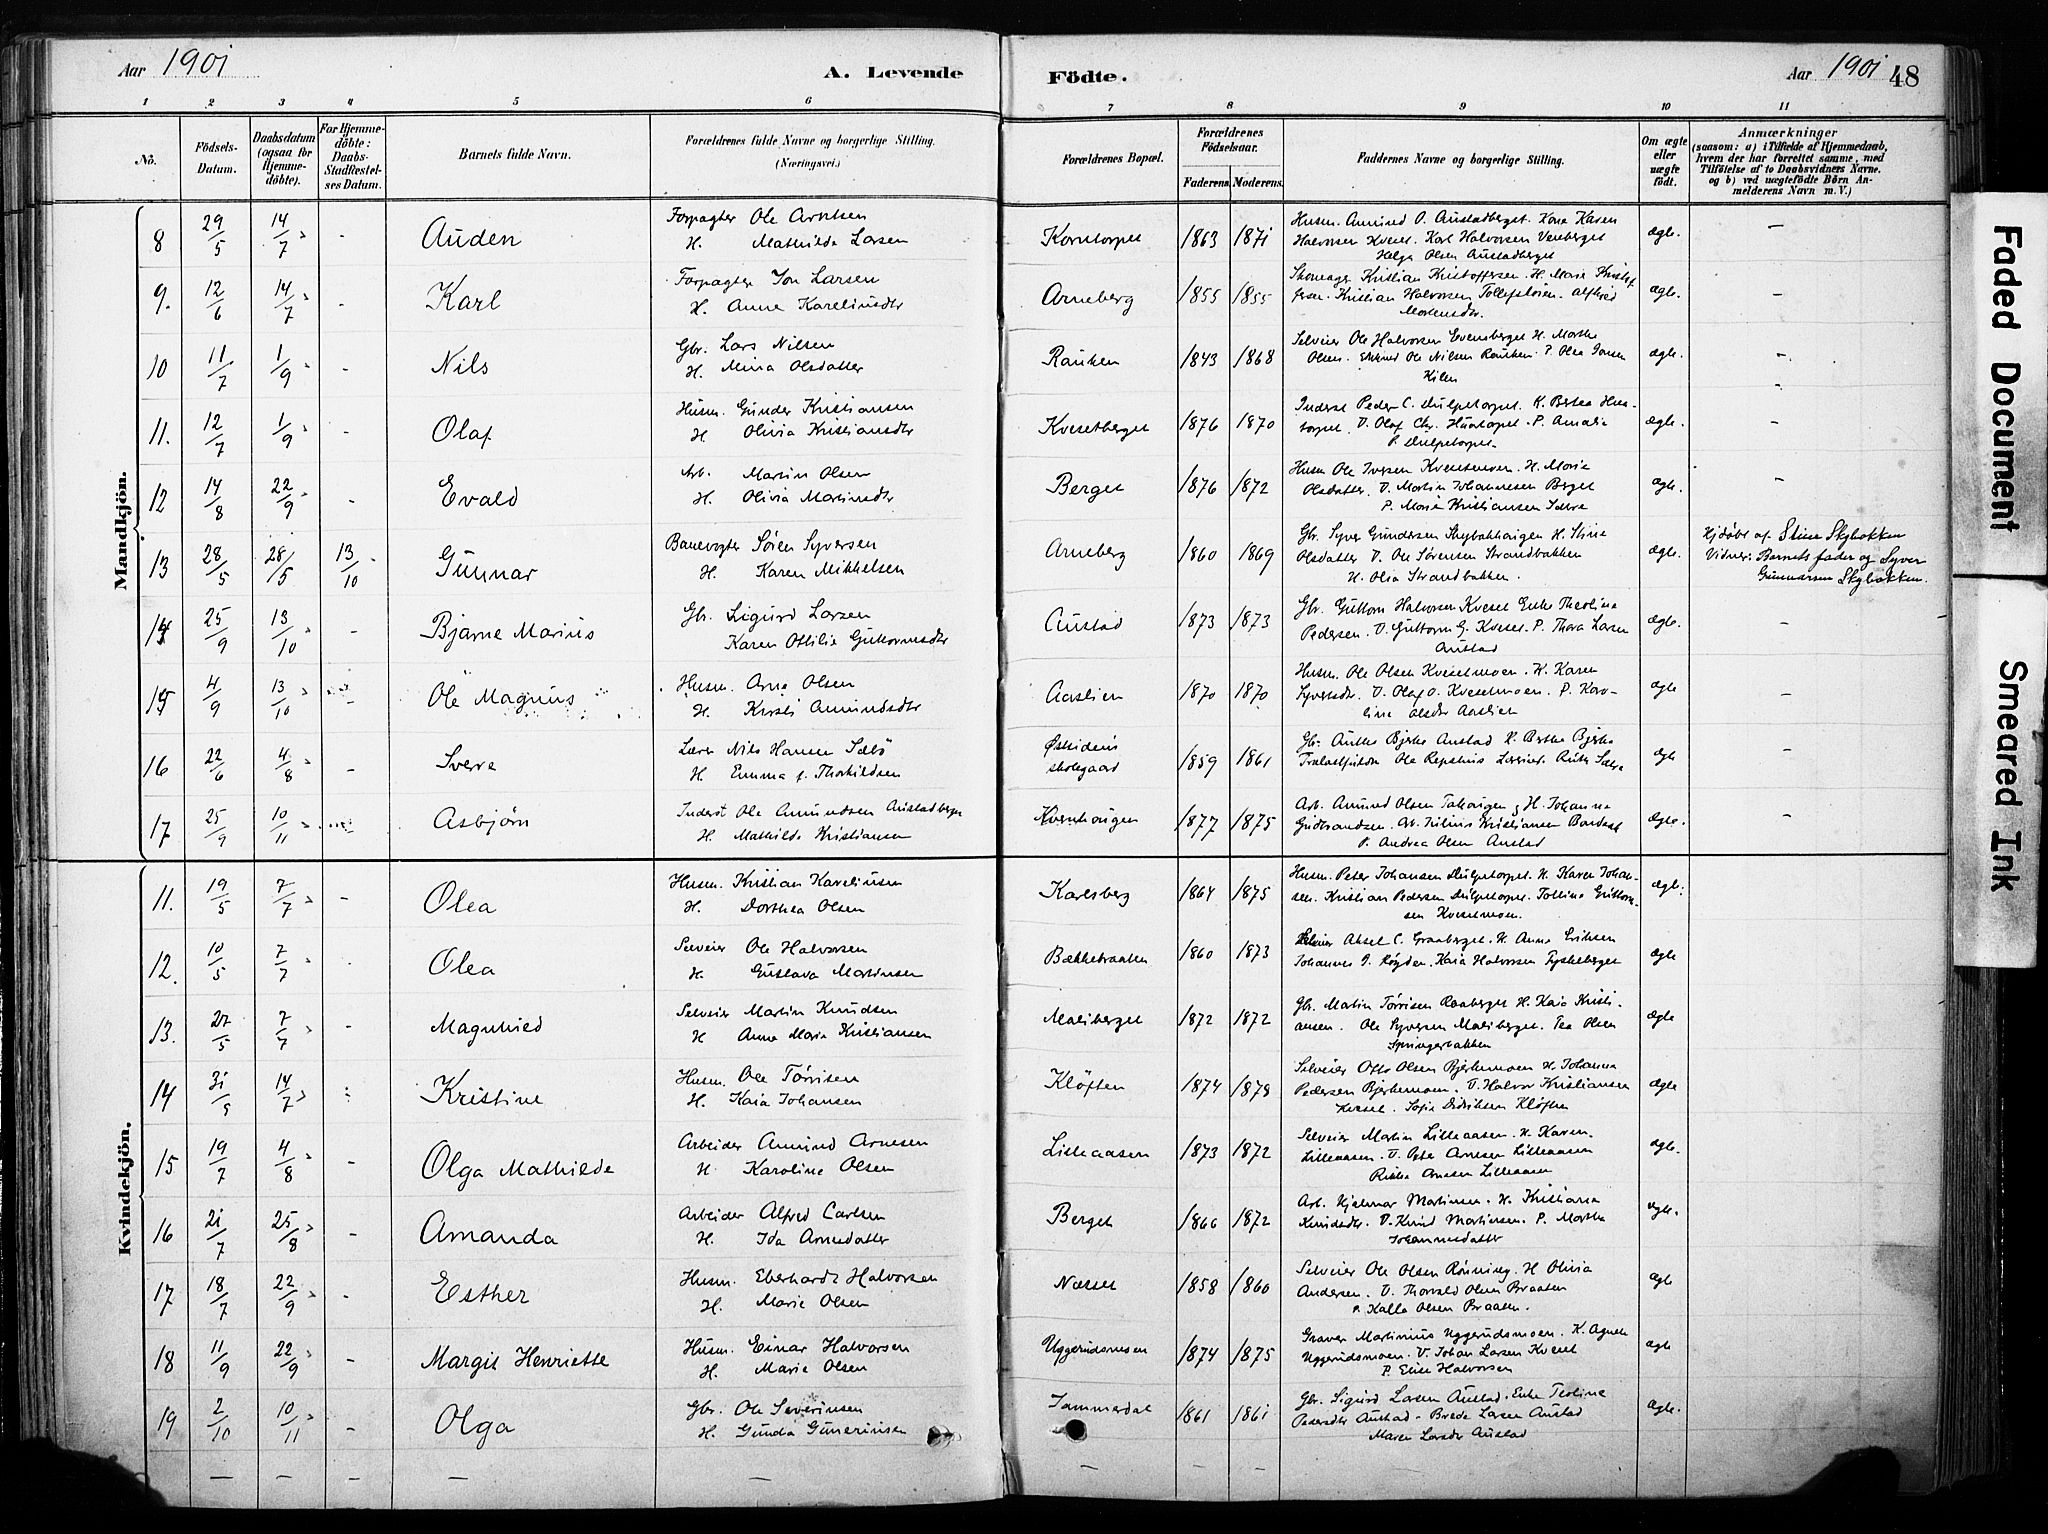 Aar 1901
A. Levende Födte.
Aar 1901 48
1 2 3 4 5 6 7 8 9 10 11
No. Födsels-Datum. Daabsdatum (ogsaa for Hjemme-döbte). For Hjemme-döbte: Daabs-Stadfæstel-ses Datum. Barnets fulde Navn. Forældrenes fulde Navne og borgerlige Stilling. (Næringsvei.) Forældrenes Bopæl. Forældrenes Födselsaar. Faderens. Moderens. Faddernes Navne og borgerlige Stilling. Om ægte eller uægte födt. Anmærkninger (saasom: a) i Tilfælde af Hjemmedaab, hvem der har forrettet samme, med Tilföielse af to Daabsvidners Navne. og b) ved uægtefödte Börn An-melderens Navn m. V.)
Mandkjön.
8 29/5 14/7 - Auden Forpagter Ole Arntsen H. Mathilde Larsen Korntorpet 1863 1871 Husm. Amund O. Austadberget. Kone Karen Halvorsen Kveset. Karl Halvorsen Venberget Helga Olsen Austadberget ægte. -
9. 12/6 14/7 - Karl Forpagter Jon Larsen H. Anne Karelinusdtr Arneberg 1855 1855 Kristian Kristoffersen. H. Marie Kristof fersen. Kristian Halvorsen Mortensdtr. ægte. -
10 11/7 1/9 - Nils Gbr. Lars Nilsen H. Mina Olsdatter Rauken 1843 1868 Selveier Ole Halvorsen Evensberget H. Marthe Olsen. Ole Nilsen Rauken. P. Olea Jonsen Kilen ægte. -
11. 12/7 1/9 - Olaf Husm. Gunder Kristiansen H. Olivia Kristiansdtr Kvesetberget 1876 1870 Inderst Peder C. Dulpetorpet. K. Bertea Hun-torpet. U. Olaf Chr. Huntorpet. P. Amalie P. Dulpetorpet. ægte. -
12 14/8 22/9 - Evald Arb. Martin Olsen H. Olivia Martinsdtr Berget 1876 1872 Husm Ole Iversen Kvesetmoen. H. Marie Olsdatter. U. Martin Johannesen Berget P. Marie Kristiansen ægte. -
13 28/5 28/5 13/10 Gunnar Banevogter Søren Syversen H. Karen Mikkelsen Arneberg 1860 1869 Gbr. Syver Gundersen Skybakhaugen H. Stine Olsdatter U. Ole Sørensen Strandbakken H. Olia Strandbakken. ægte. Hjdøbt af Stine Skybakken Vidner: Barnets fader og Syver Gunnarsen Skybakken.
14 25/9 13/10 - Bjarne Marius Gbr. Sigurd Larsen Karen Ottilia Guttormsdtr Austad 1873 1873 Gbr. Guttorm Halvorsen Kveset Enke Theolina Pedersen. U. Guttorm G. Kveset. P. Thora Larsen Austad ægte. -
15 4/9 13/10 Ole Magnus Husm. Arne Olsen H. Kirsti Amundsdtr Aaslien 1870 1870 Husm. Ole Olsen Kvesetmoen. H. Karen Syversdtr. U. Olaf O. Kvesetmoen. P. Karo-line Olsdtr Aaslien ægte -
16 22/6 4/8 - Sverre Lærer Nils Hansen Sæbö H Emma f. Thorkildsen Østsidens skolegaard 1859 1861 Gbr. Bjerke Austad H. Berthe Bjerke ægte -
17 25/9 10/11 Asbjörn Inderst Ole Amundsen Austadberget H. Mathilde Kristiansen Kvernhaugen 1877 1875 Arb. Amund Olsen H. Johanna Gudbrandsen. Arb. Julius Kristiansen P. Andrea Olsen Austad ægte. -
Kvindekjön.
11. 19/5 7/7 - Olea Husm. Kristian Karelinsen H. Dorthea Olsen Karlsberg 1864 1875 Husm. Peter Johansen Dulpetorpet. H. Karen Johan-sen. Kristian Pedersen Dulpetorpet. Guttorm-sen Kvesetmoen. ægte.
12. 10/5 7/7 - Olea Selveier Ole Halvorsen H Gustava Martinsen Bækkebraaten 1860 1873 Selveier Aksel C. Graaberget. H. Anne Eriksen Johannes J. Røgden. Kaia Halvorsen Tyskeberget ægte
13. 27/5 7/7 - Magnhild Selveier Martin Knudsen H Anne Marie Kristiansen Maliberget 1872 1872 Gbr. Martin Tørrisen Raaberget H. Kaia Kristi-ansen. Ole Syversen Maliberget. Tea Olsen Springerbakken ægte
14 31/5 14/7 Kristine Husm. Ole Tørrisen H. Kaia Johansen Kløften 1874 1878 Selveier Otto Olsen Bjerkemoen H. Johanna Pedersen Bjerkemoen. U. Halvor Kristiansen Kveset. Sofie Didriksen Kløften ægte
15 19/7 4/8 - Olga Mathilde Arbeider Amund Arnesen H Karoline Olsen Lilleaasen 1873 1872 Selveier Martin Lilleaasen. H. Karen. Lilleaasen. U. Peter Arnesen Lilleaasen Arnesen Lilleaasen ægte.
16 21/7 25/8 - Amanda Arbeider Alfred Carlsen H. Ida Arnesdatter Berget 1866 1872 Arb. Hjalmar Martinsen. H. Kristiane Knudsdtr. U. Knud Martinsen. P. Marthe Johannesdatter ægte.
17 18/7 22/9 - Esther Husm. Eberhardt Halvorsen H. Marie Olsen Næsset 1858 1860 Selveier Ole Olsen Rønning. H Olivia Andersen. U. Thorvald Olsen Braaten P. Kalla Olsen Braaten. ægte
18 11/9 22/9 - Margit Henriette Husm. Einar Halvorsen H. Marie Olsen Uggerudsmoen 1874 1875 Graver Martinius Uggerudsmoen. K. Agnete Uggerudsmoen. U. Johan Larsen Kveset P. Elise Halvorsen ægte
19 2/10 10/11 - Olga Gbr. Ole Severinsen H. Gunda Gunerinsen Jammerdal 1861 1861 Gbr. Sigurd Larsen Austad. Enke Teoline Pedersdtr Austad - Brede Larsen Austad Maren Larsdtr Austad ægte.
Faded Document
Smeared Ink